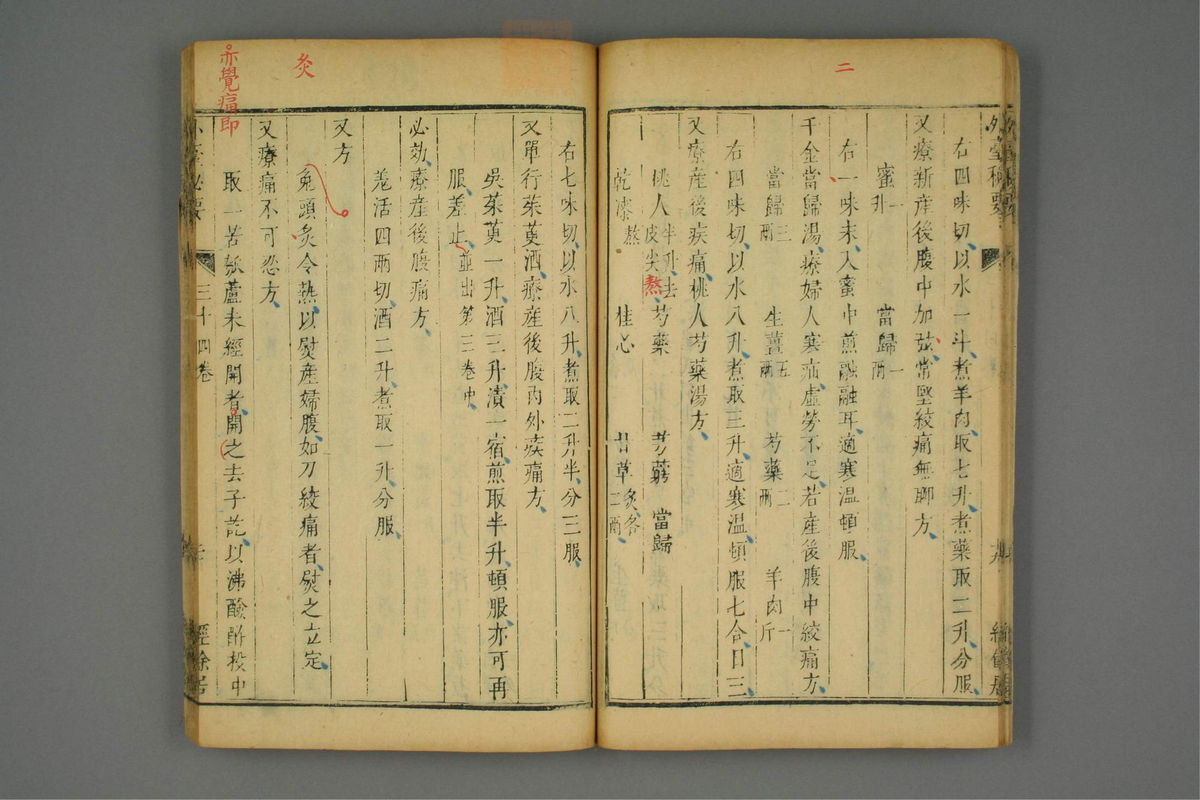 二
右四味切以水一斗煮羊肉取七升煮藥取二升分服
又療新産後腹中如弦常堅絞痛無聊方
蜜一升 當歸一兩
右一味末入蜜中煎融融耳適寒温頓服
千金當歸湯療婦人寒疝虛勞不足若産後腹中絞痛方
當歸三兩 生薑五兩 芍藥二兩 羊肉一斤
右四味切以水八升煮取三升適寒温頓服七合日三
又療産後疾痛桃人芍藥湯方
桃人半升去皮尖熬 芍藥 芎藭 當歸
乾漆熬 桂心 甘草炙各二兩
右七味切以水八升煮取二升半分三服
又單行茱萸酒療産後腹内外疾痛方
吳茱萸一升酒三升漬一宿煎取半升頓服亦可再
服差止並出第三卷中
必効療産後腹痛方
羗活四兩切酒二升煮取一升分服
又方
兔頭炙令熱以熨産婦腹如刀絞痛者熨之立定
又療痛不可忍方
取一苦瓠蘆未經開者開之去子訖以沸醶酢投中
炙
亦覺痛即
外臺秘要 三十四卷 經餘居